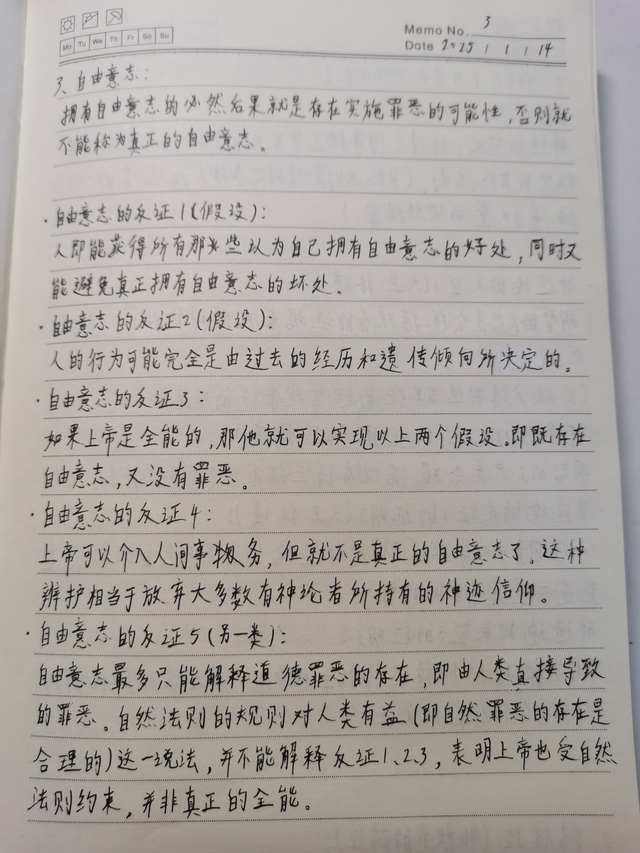 Mo Tu We Th Fr Sa Su
Memo No. 3
Date 2025 / 1 / 14
3、自由意志：
拥有自由意志的必然后果就是存在实施罪恶的可能性，否则就
不能称为真正的自由意志。
·自由意志的反证1（假设）：
人即能获得所有那些认为自己拥有自由意志的好处，同时又
能避免真正拥有自由意志的坏处。
·自由意志的反证2（假设）：
人的行为可能完全是由过去的经历和遗传倾向所决定的。
·自由意志的反证3：
如果上帝是全能的，那他就可以实现以上两个假设。即既存在
自由意志，又没有罪恶。
·自由意志的反证4：
上帝可以介入人间事物务，但就不是真正的自由意志了。这种
辨护相当于放弃大多数有神论者所持有的神迹信仰。
·自由意志的反证5（另一类）：
自由意志最多只能解释道德罪恶的存在，即由人类直接导致
的罪恶。自然法则的规则对人类有益（即自然罪恶的存在是
合理的）这一说法，并不能解释反证1、2、3，表明上帝也受自然
法则约束，并非真正的全能。